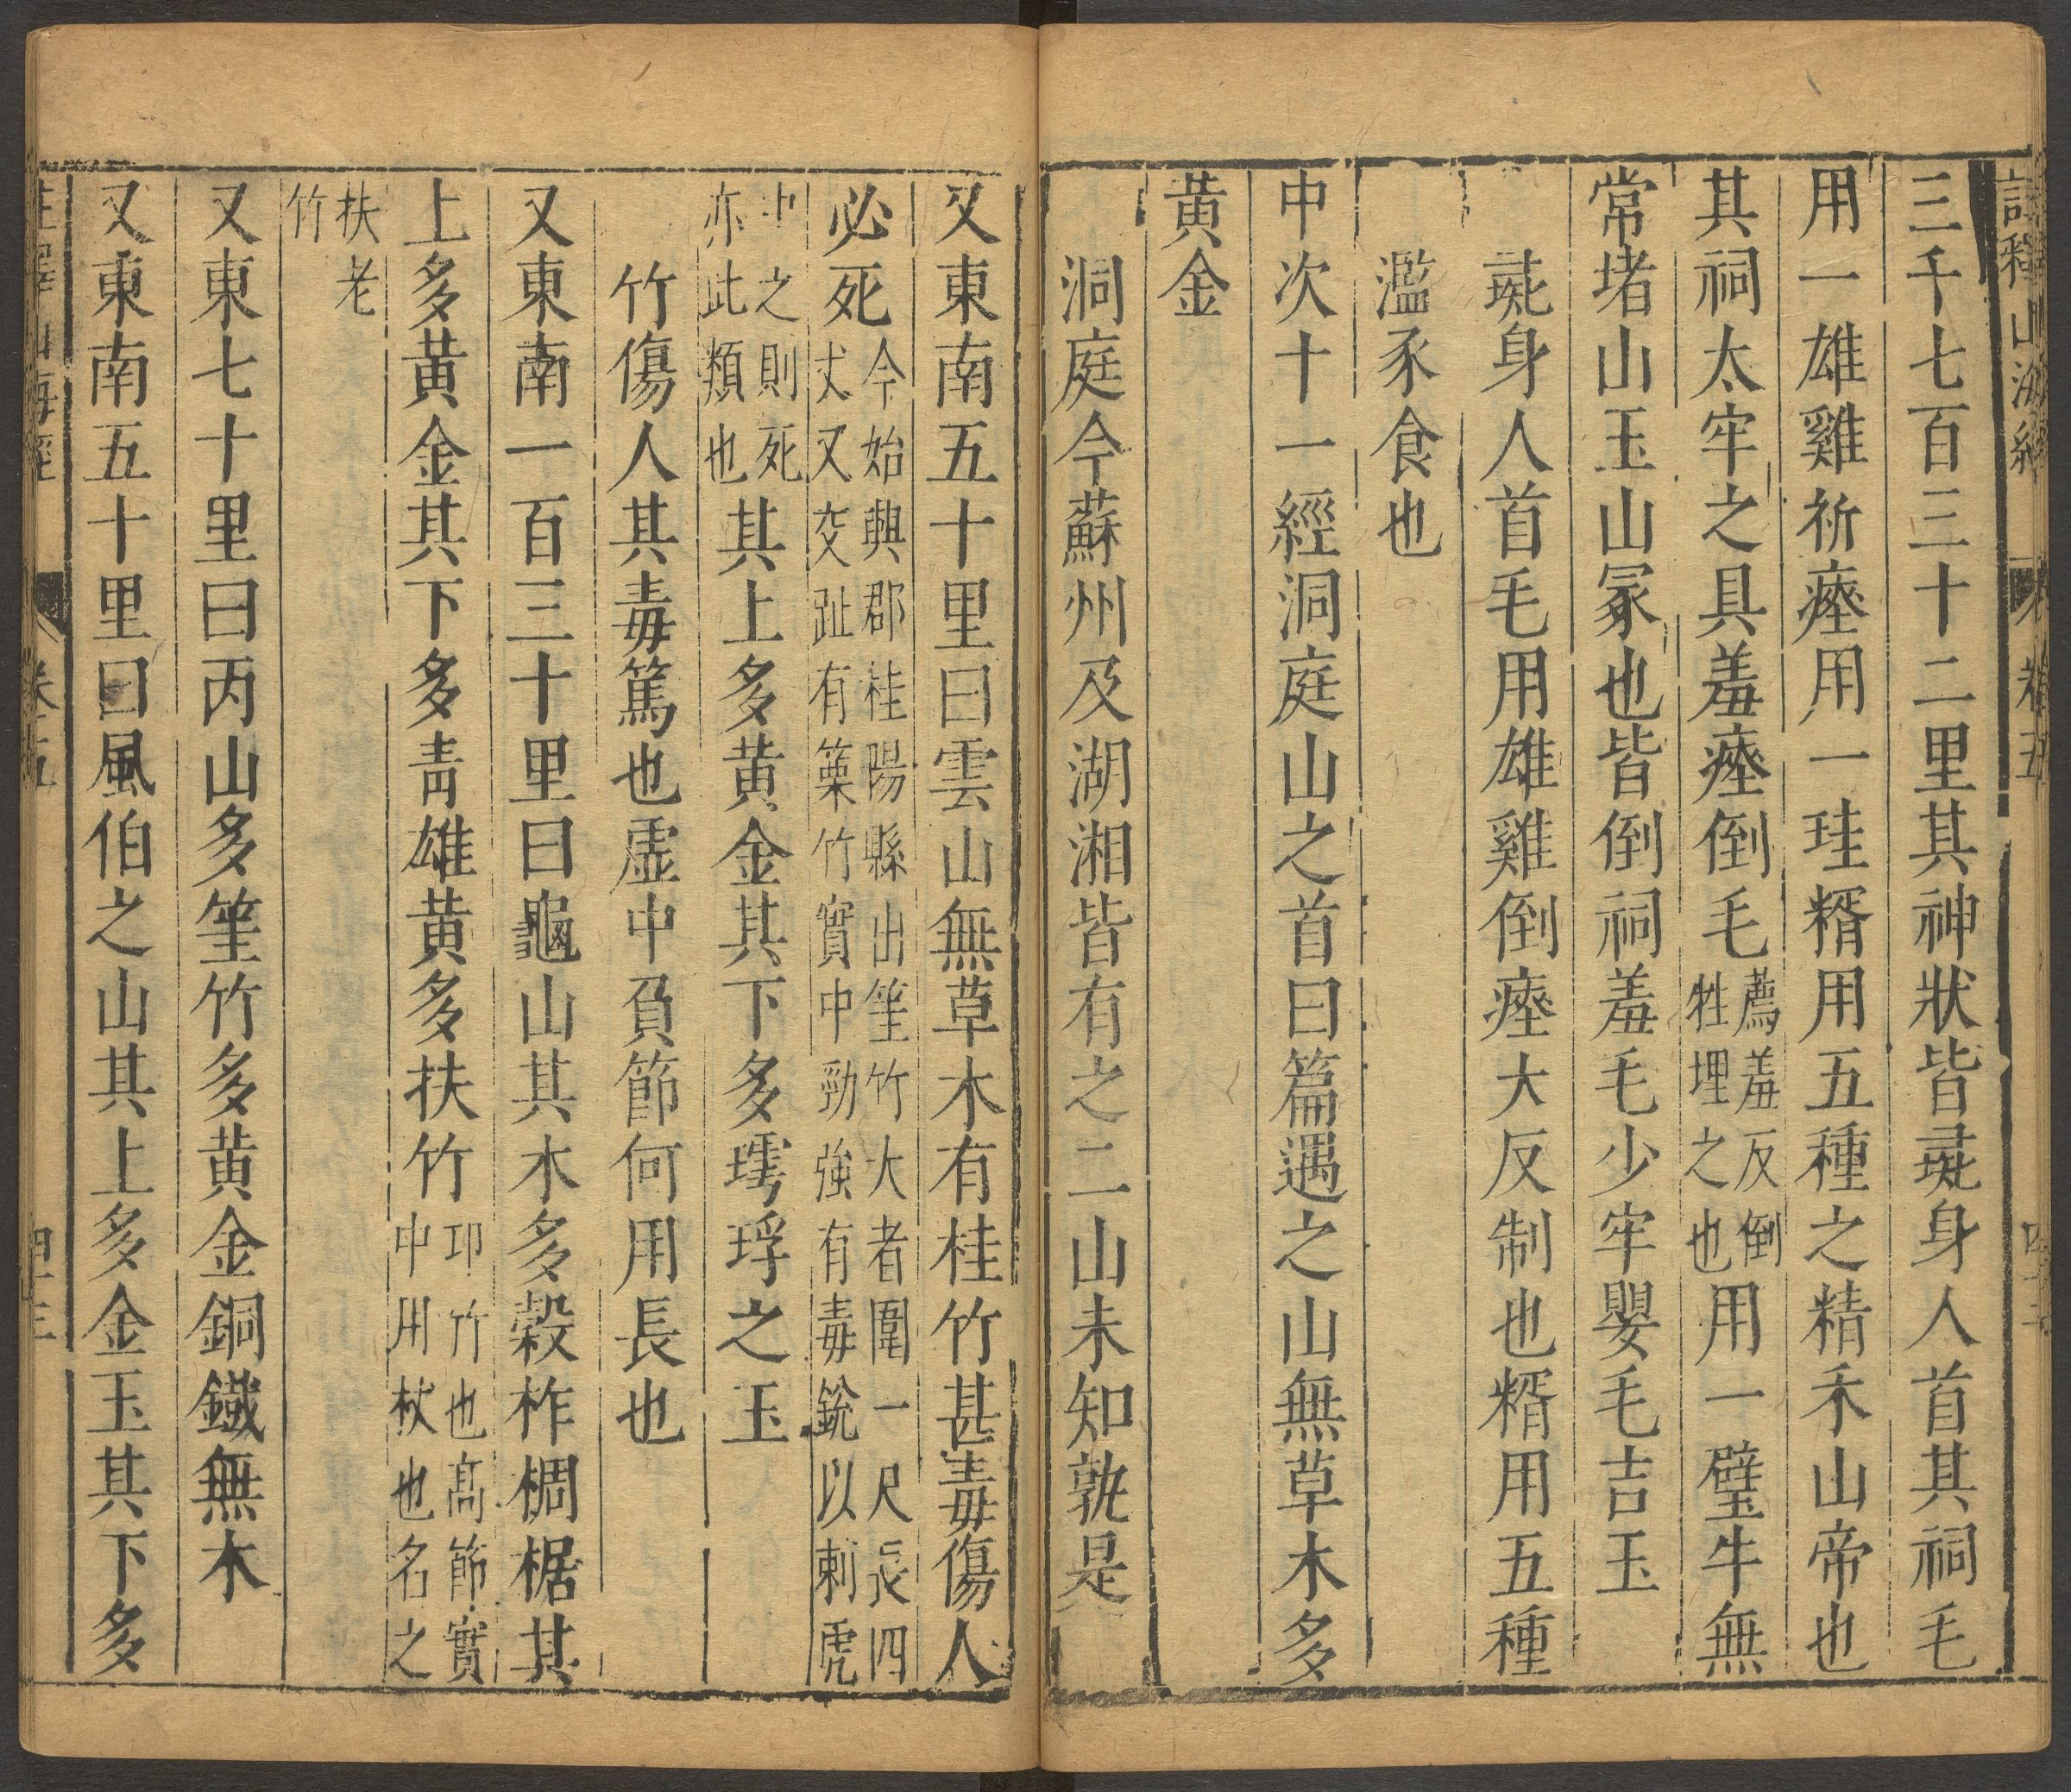 三千七百三十二里其神狀皆彘身人首其祠毛
用一雄雞祈瘞用一珪糈用五種之精禾山帝也
其祠太牢之具羞瘞倒毛薦羞反倒牲埋之也用一璧牛無
常堵山玉山冡也皆倒祠羞毛少牢嬰毛吉玉
彘身人首毛用雄雞倒瘞大反制也糈用五種
濫豕食也
中次十一經洞庭山之首曰篇遇之山無草木多
黄金
洞庭今蘇州及湖湘皆有之二山未知孰是
又東南五十里曰雲山無草木有桂竹甚毒傷人
必死今始興郡桂陽縣出筀竹大者圍一尺長四丈又交趾有篥竹實中勁強有毒銳以刺虎
中之則死亦此類也其上多黄金其下多㻬琈之玉
竹傷人其毒篤也虛中負節何用長也
又東南一百三十里曰龜山其木多榖柞椆椐其
上多黄金其下多青雄黄多扶竹邛竹也高節實中用杖也名之
扶老竹
又東七十里曰丙山多筀竹多黄金銅鐵無木
又東南五十里曰風伯之山其上多金玉其下多